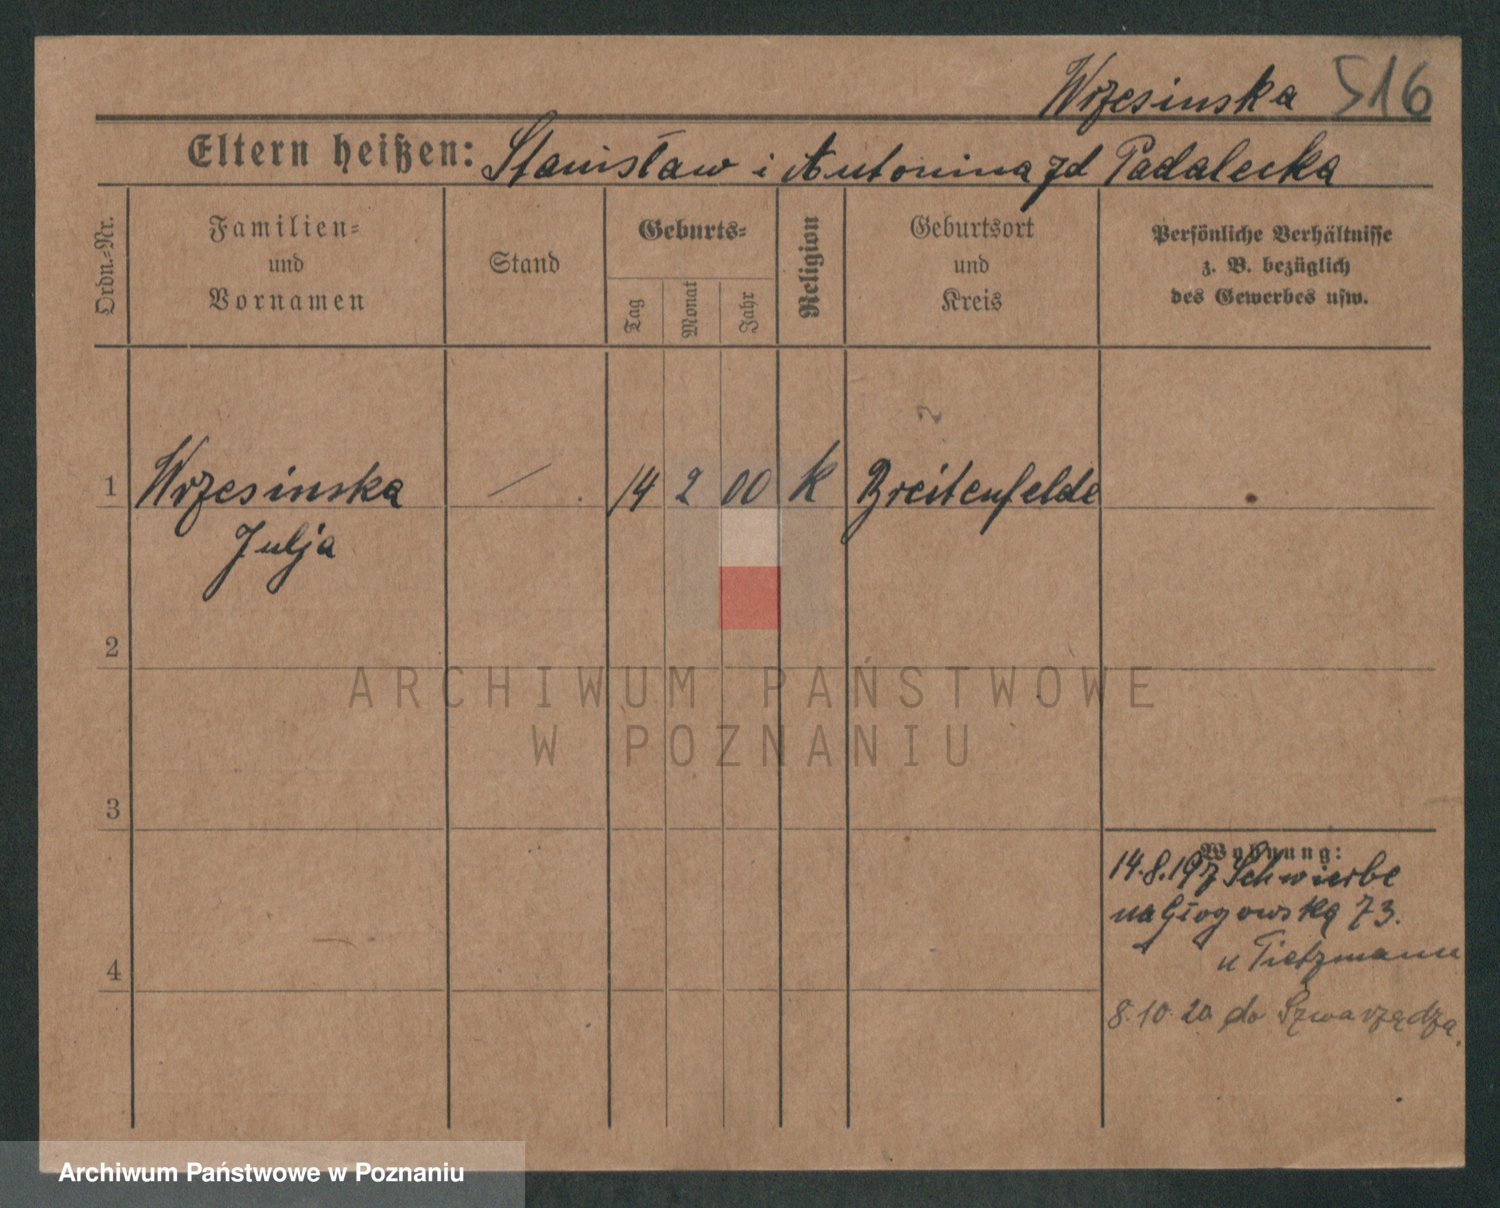 Wrzesinska 516
Eltern heißen: Stanisław i Antonina zd Padalecka
Ordn.-Nr.
Familien-
und
Vornamen
Stand
Geburts-
Tag
Monat
Jahr
Religion
Geburtsort
und
Kreis
Persönliche Verhältnisse
z. B. bezüglich
des Gewerbes usw.
1 Wrzesinska — 14 2 00 K Breitenfelde
Julja
2
3
4
Wohnung:
14.8.19 z Schwierbe
na Głogowską 73.
u Tietzmann
8.10.20 do Szwarządza.
ARCHIWUM PAŃSTWOWE
W POZNANIU
Archiwum Państwowe w Poznaniu